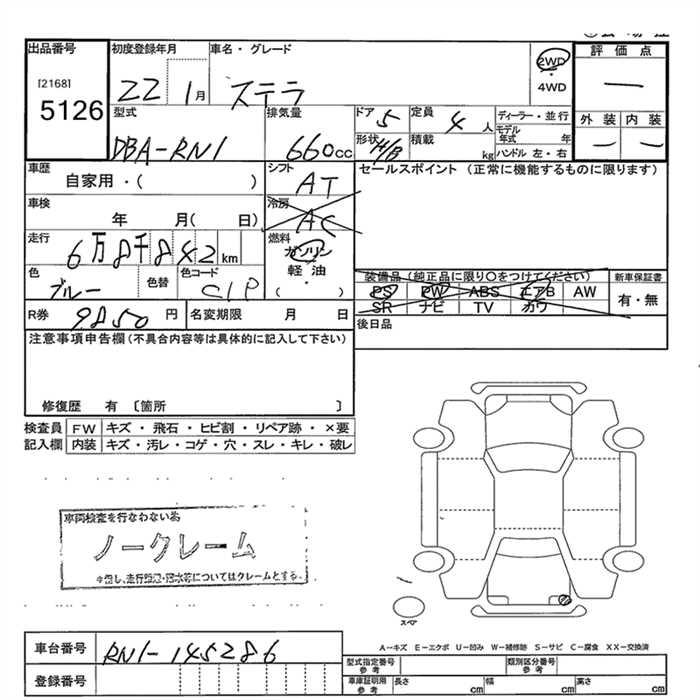 出品番号 初度登録年月 車名・グレード 2WD 評価点
[2168]
5126
22 1月 ステラ ・ 4WD ―
型式 排気量 ドア 5 定員 4人 ディーラー・並行 外装 内装
DBA-RN1 660cc 形状 H/B 積載 kg モデル年式 年 ― ―
ハンドル 左・右
車歴 シフト セールスポイント (正常に機能するものに限ります)
自家用・( ) AT
車検 冷房
年 月( 日) AC
走行 燃料
6万8千842km ガソリン
軽油
・
( )
色 色替 色コード
ブルー C1P
装備品 (純正品に限り○をつけてください) 新車保証書
PS PW ABS エアB AW 有・無
SR ナビ TV カワ
R券 9850円 名変期限 月 日 後日品
注意事項申告欄 (不具合内容等は具体的に記入して下さい)
修復歴 有 〔箇所 〕
検査員 FW キズ・飛石・ヒビ割・リペア跡・×要
記入欄 内装 キズ・汚レ・コゲ・穴・スレ・キレ・破レ
車両検査を行なわない為
ノークレーム
スペア
A―キズ E―エクボ U―凹み W―補修跡 S―サビ C―腐食 XX―交換済
車台番号 RN1-145286
登録番号
型式指定番号 参考 類別区分番号 参考
車庫証明用 参考 長さ cm 幅 cm 高さ cm